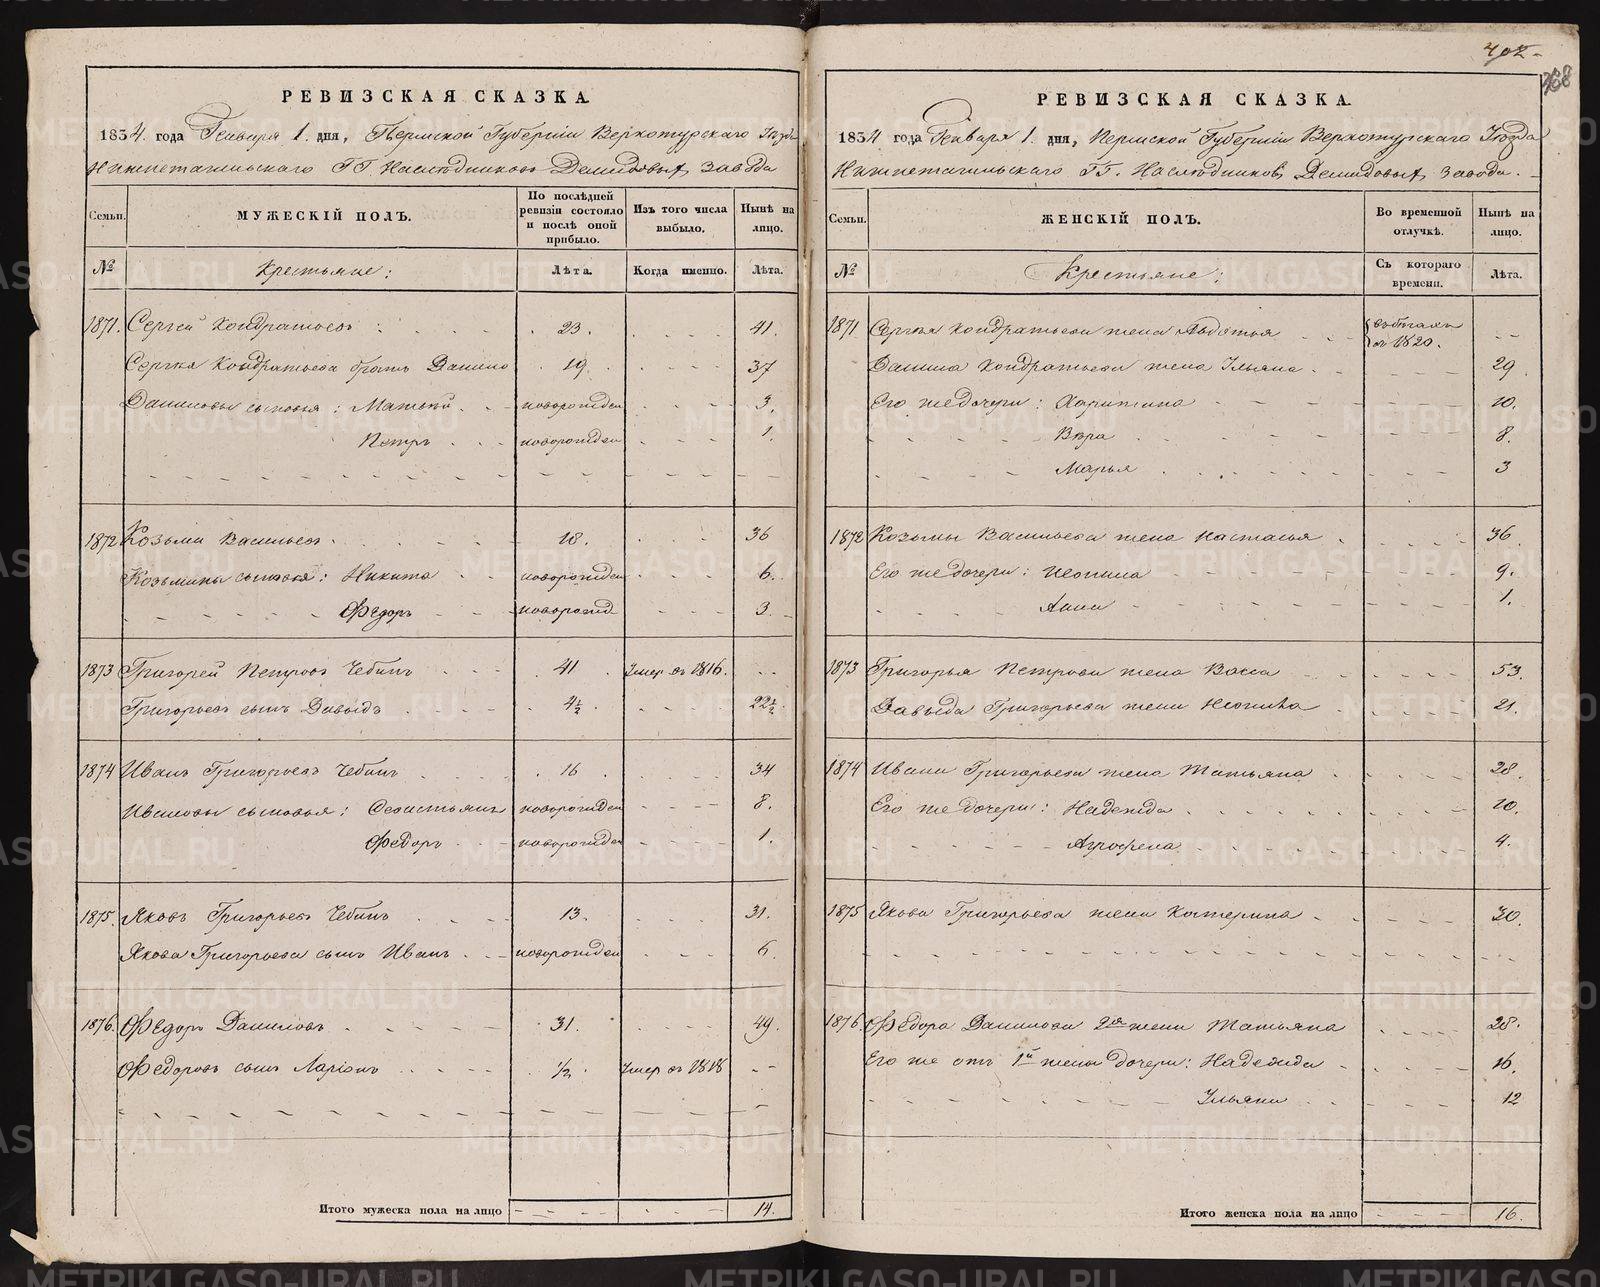 402
368
РЕВИЗСКАЯ СКАЗКА.
1834. года Генваря 1. дня, Пермской Губерніи Верхотурскаго Уѣзда
Нижнетагильскаго ГГ. Наслѣдниковъ Демидовыхъ завода
Семьи. МУЖЕСКІЙ ПОЛЪ. По послѣдней ревизіи состояло и послѣ оной прибыло. Изъ того числа выбыло. Нынѣ на лицо.
№ Крестьяне: Лѣта. Когда именно. Лѣта.
1871. Сергей Кондратьевъ 23. 41.
Сергѣя Кондратьева братъ Данило 19. 37
Даниловы сыновья: Матвѣй новорожден 3.
Петръ новорожден 1.
1872 Козьма Васильевъ 18. 36
Козьмины сыновья: Никита новорожден 6.
Ѳедоръ новорожд 3.
1873 Григорей Петровъ Чебинъ 41 Умер въ 1816.
Григорьевъ сынъ Давыдъ 4½ 22½.
1874 Иванъ Григорьевъ Чебинъ 16 34
Ивановы сыновья: Севастьянъ новорожден 8.
Ѳедоръ новорожден 1.
1875. Яковъ Григорьевъ Чебинъ 13. 31.
Якова Григорьева сынъ Иванъ новорожден 6.
1876. Ѳедоръ Даниловъ 31. 49.
Ѳедоровъ сынъ Ларіонъ ½ Умер въ 1818
Итого мужеска пола на лицо 14.
РЕВИЗСКАЯ СКАЗКА.
1834 года Генваря 1. дня, Пермской Губерніи Верхотурскаго Уѣзда
Нижнетагильскаго ГГ. Наслѣдниковъ Демидовыхъ завода.
Семьи. ЖЕНСКІЙ ПОЛЪ. Во временной отлучкѣ. Нынѣ на лицо.
№ Крестьяне: Съ котораго времени. Лѣта.
1871 Сергѣя Кондратьева жена Авдотья въ бѣгахъ съ 1820.
Данила Кондратьева жена Ульяна 29
Его же дочери: Харитина 10.
Вѣра 8.
Марья 3
1872 Козьмы Васильева жена Настасья 36.
Его же дочери: Неонила 9.
Анна 1.
1873 Григорья Петрова жена Васса 53.
Давыда Григорьева жена Неонила 21.
1874 Ивана Григорьева жена Татьяна 28.
Его же дочери: Надежда 10.
Агрофена 4.
1875 Якова Григорьева жена Катерина 30.
1876 Ѳедора Данилова 2я жена Татьяна 28.
Его же отъ 1й жены дочери: Надежда 16.
Ульяна 12
Итого женска пола на лицо 16.
METRIKI.GASO-URAL.RU